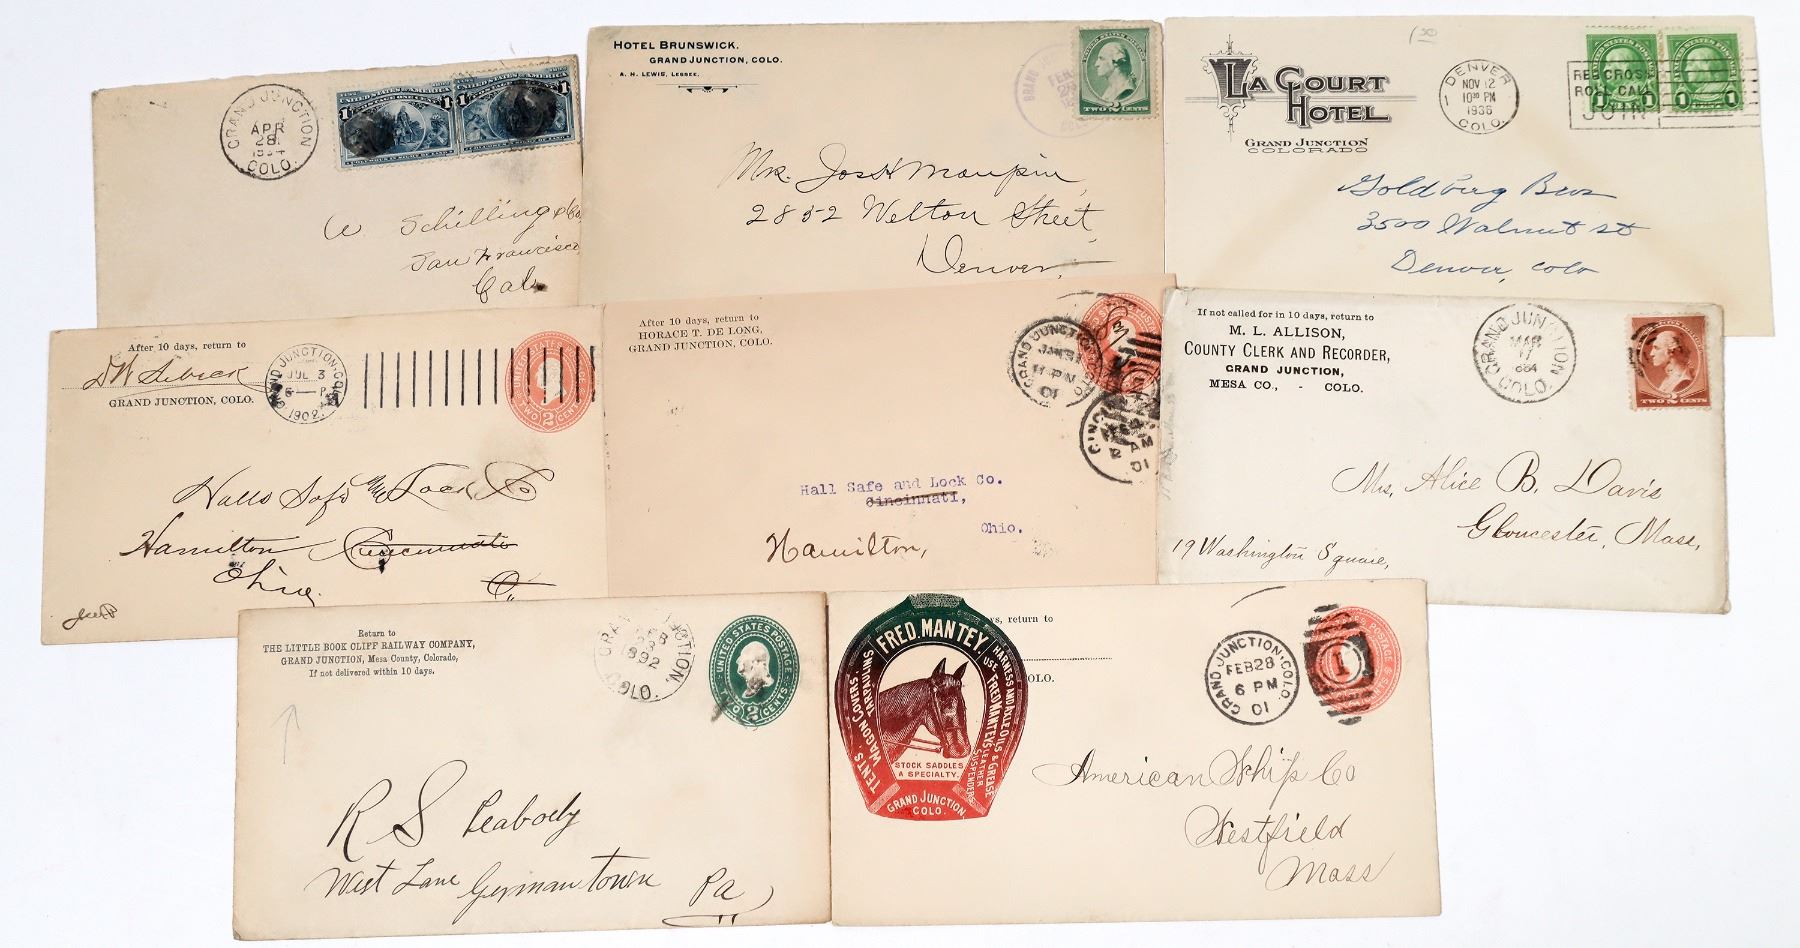 GRAND JUNCTION
APR
28
COLO.
UNITED STATES OF AMERICA
1 1
W Schilling & Co.
San Francisco,
Cal.
HOTEL BRUNSWICK.
GRAND JUNCTION, COLO.
A. H. LEWIS, LESSEE.
FEB
COLO
TWO CENTS
Mr. Jos H Maupin,
2852 Welton Street,
Denver,
LA COURT
HOTEL
GRAND JUNCTION
COLORADO
1.50
DENVER
1
NOV 12
10 30 PM
1936
COLO.
RED CROSS
ROLL CALL
JOIN
UNITED STATES POSTAGE
1 1
1 1
Goldberg Bros
3500 Walnut st
Denver, colo
After 10 days, return to
GRAND JUNCTION, COLO.
GRAND JUNCTION. COLO.
JUL 3
6 - P
1902
UNITED STATES
TWO 2 CENTS
Halls Safe and Lock Co
Hamilton Cincinnati
Ohio.
O
After 10 days, return to
HORACE T. DE LONG,
GRAND JUNCTION, COLO.
GRAND JUNCTION. COLO.
JAN 31
11 PM
01
FEB
2 AM
01
Hall Safe and Lock Co.
Cincinnati,
Ohio.
Hamilton,
If not called for in 10 days, return to
M. L. ALLISON,
COUNTY CLERK AND RECORDER,
GRAND JUNCTION,
MESA CO., - COLO.
GRAND JUNCTION
MAR
17
COLO.
TWO 2 CENTS
Mrs, Alice B. Davis
Gloucester, Mass,
19 Washington Square,
Return to
THE LITTLE BOOK CLIFF RAILWAY COMPANY,
GRAND JUNCTION, Mesa County, Colorado,
If not delivered within 10 days.
GRAND JUNCTION,
1892
COLO.
UNITED STATES POSTAGE
TWO 2 CENTS
R S Peabody
West Lane Germantown Pa
ys, return to
OLO.
FRED. MANTEY
TENTS. WAGON COVERS. TARPAULINS
USE FRED MANTEY'S HARNESS AND AXLE OILS & GREASE
LEATHER SUSPENDERS
STOCK SADDLES
A SPECIALTY.
GRAND JUNCTION
COLO.
GRAND JUNCTION. COLO.
FEB 28
6 PM
01
1
American Whip Co
Westfield
Mass